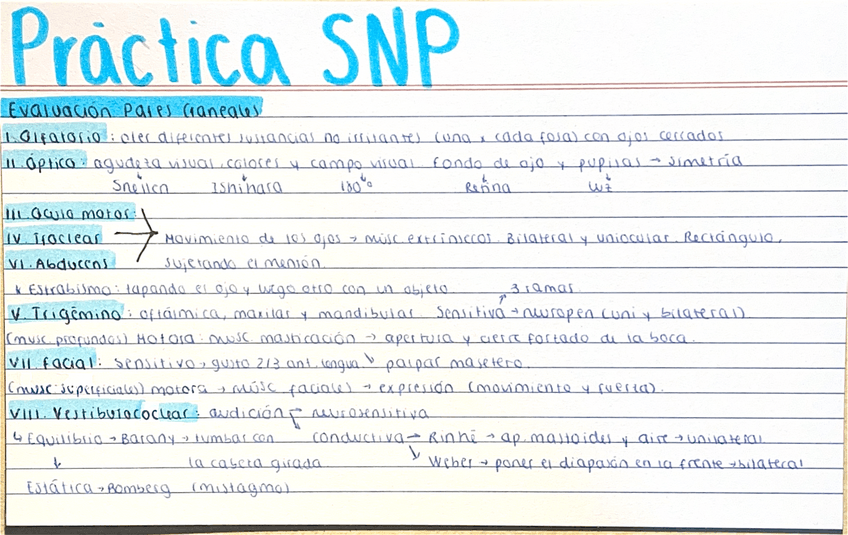 Práctica SNP
Evaluación Pares Craneales
I. Olfatorio: oler diferentes sustancias no irritantes (una x cada fosa) con ojos cerrados
II. Óptico: agudeza visual, colores y campo visual. Fondo de ojo y pupilas → simetría
Snellen Ishihara 180° Retina Luz
III. Oculo motor
IV. Troclear → Movimiento de los ojos → Músc extrínsecos. Bilateral y uniocular. Rectángulo,
VI. Abducens sujetando el mentón.
* Estrabismo: tapando el ojo y luego otro con un objeto. 3 ramas
V. Trigémino: oftálmica, maxilar y mandibular. Sensitiva → neuropen (uni y bilateral)
(musc profundos) Motora: musc masticación → apertura y cierre forzado de la boca.
VII. Facial: Sensitivo → gusto 2/3 ant. lengua. ↘ palpar masetero.
(musc superficiales) motora → Músc faciales → expresión (movimiento y fuerza).
VIII. Vestibulococlear: audición neurosensitiva
↳ Equilibrio → Barany → tumbar con conductiva → Rinné → ap. mastoides y aire → unilateral
↓ la cabeza girada ↘ Weber → poner el diapasón en la frente → bilateral
Estática → Romberg (nistagmo)